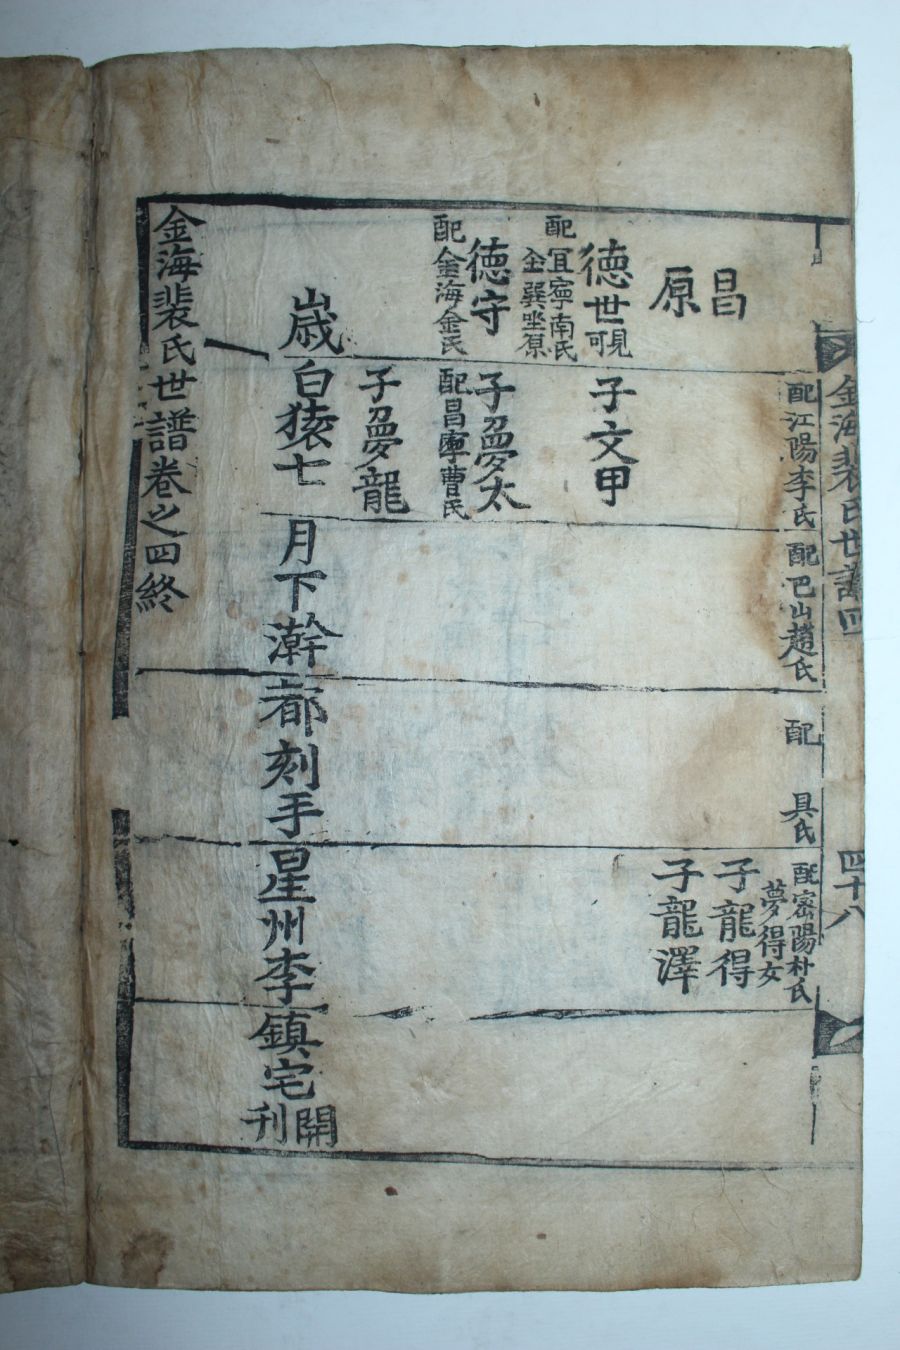 金海裴氏世譜四
四十八
配江陽李氏
配巴山趙氏
配 具氏
配密陽朴氏
夢得女
子龍得
子龍澤
昌原
德世可見
子文甲
配冝寧南氏
德守
子夢太
配金海金氏
配昌寧曺氏
子夢龍
歲白猿七月下澣都刻手星州李鎮宅開刊
金海裴氏世譜卷之四終